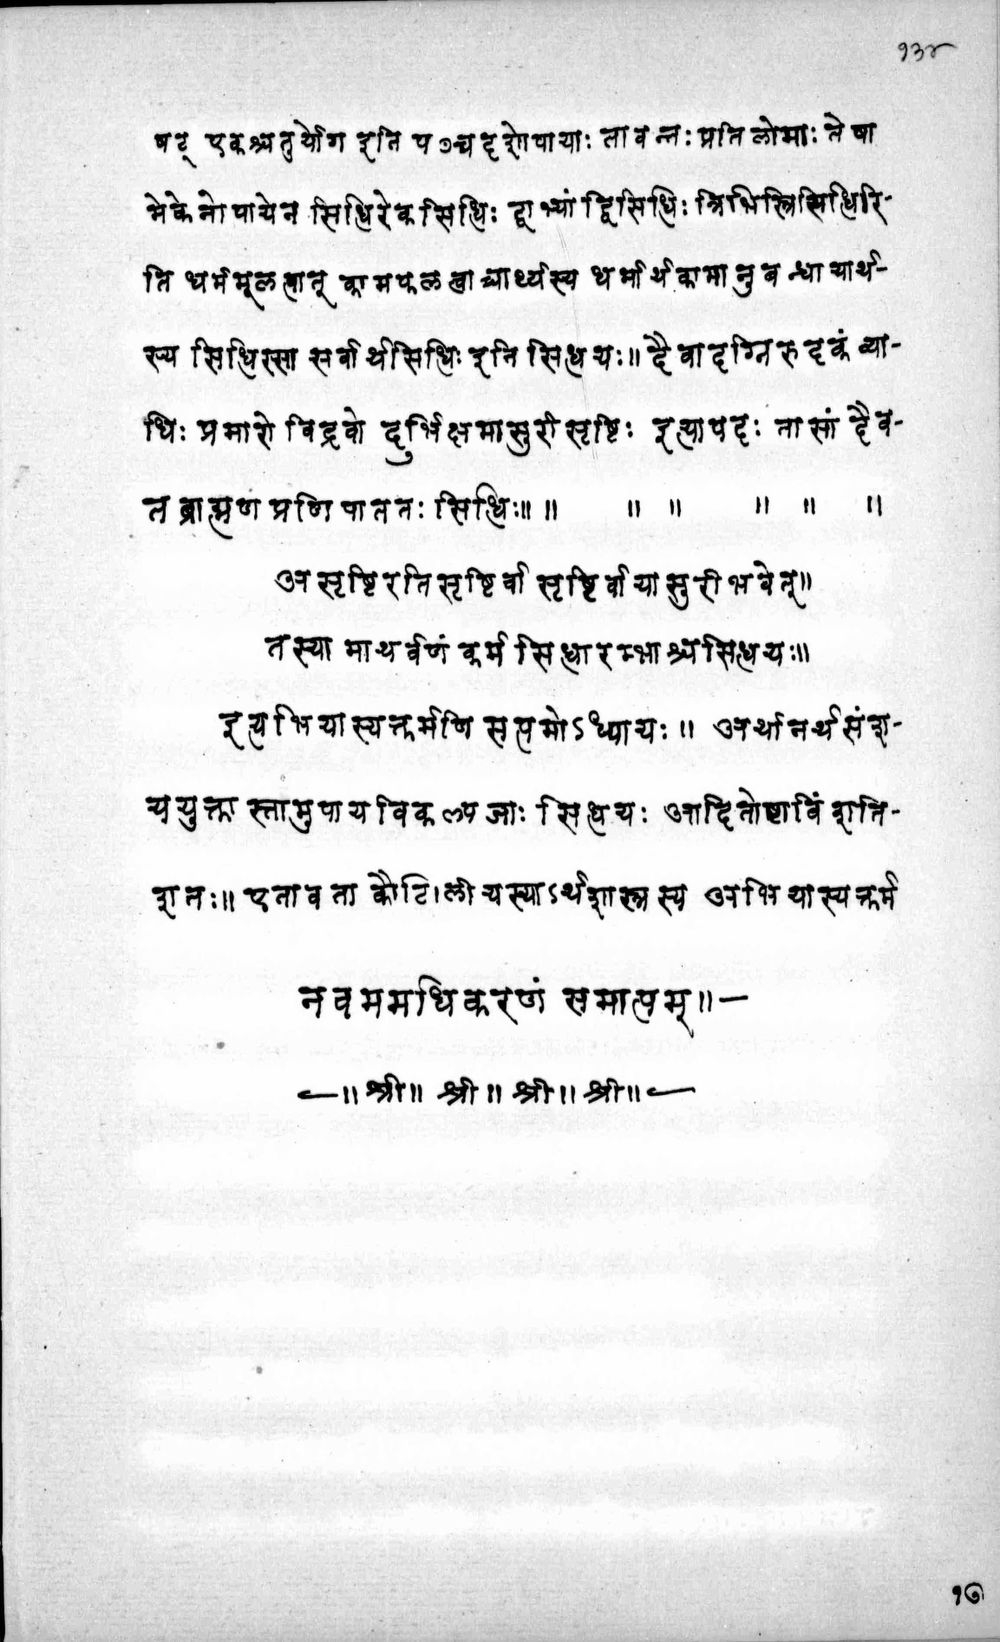 १३४
षट् एकश्चतुर्योग इति पञ्चदशोपायाः तावन्तः प्रतिलोमाः तेषा
मेकेनोपायेन सिधिरेकसिधिः द्वाभ्यां द्विसिधिः त्रिभिस्त्रिसिधिरि-
ति धर्ममूलत्वात् कामफलत्वाच्चार्थ्यस्य धर्मार्थकामानुबन्धा यार्थ-
स्य सिधिस्सा सर्वार्थसिधिः इति सिधयः॥ दैवादग्निरुदकं व्या-
धिः प्रमारो विद्रवो दुर्भिक्षमासुरी सृष्टिः इत्यापदः तासां दैव-
त ब्राह्मण प्रणिपाततः सिधिः॥ ॥ ॥ ॥ ॥ ॥ ॥
असृष्टिरतिसृष्टिर्वा सृष्टिर्वा यासुरी भवेत्॥
तस्यामाथर्वणं कर्म सिधारम्भाश्च सिधयः॥
इत्यभियास्यत्कर्मणि सप्तमोऽध्यायः॥ अर्थानर्थसंश-
ययुक्तास्तामुपायविकल्पजाः सिधयः आदितोष्टाविंशति-
शतः॥ एतावता कौटिलीयस्याऽर्थशास्त्रस्य अभियास्यत्कर्म
नवममधिकरणं समाप्तम्॥—
—॥ श्री॥ श्री॥ श्री॥ श्री॥—
१७